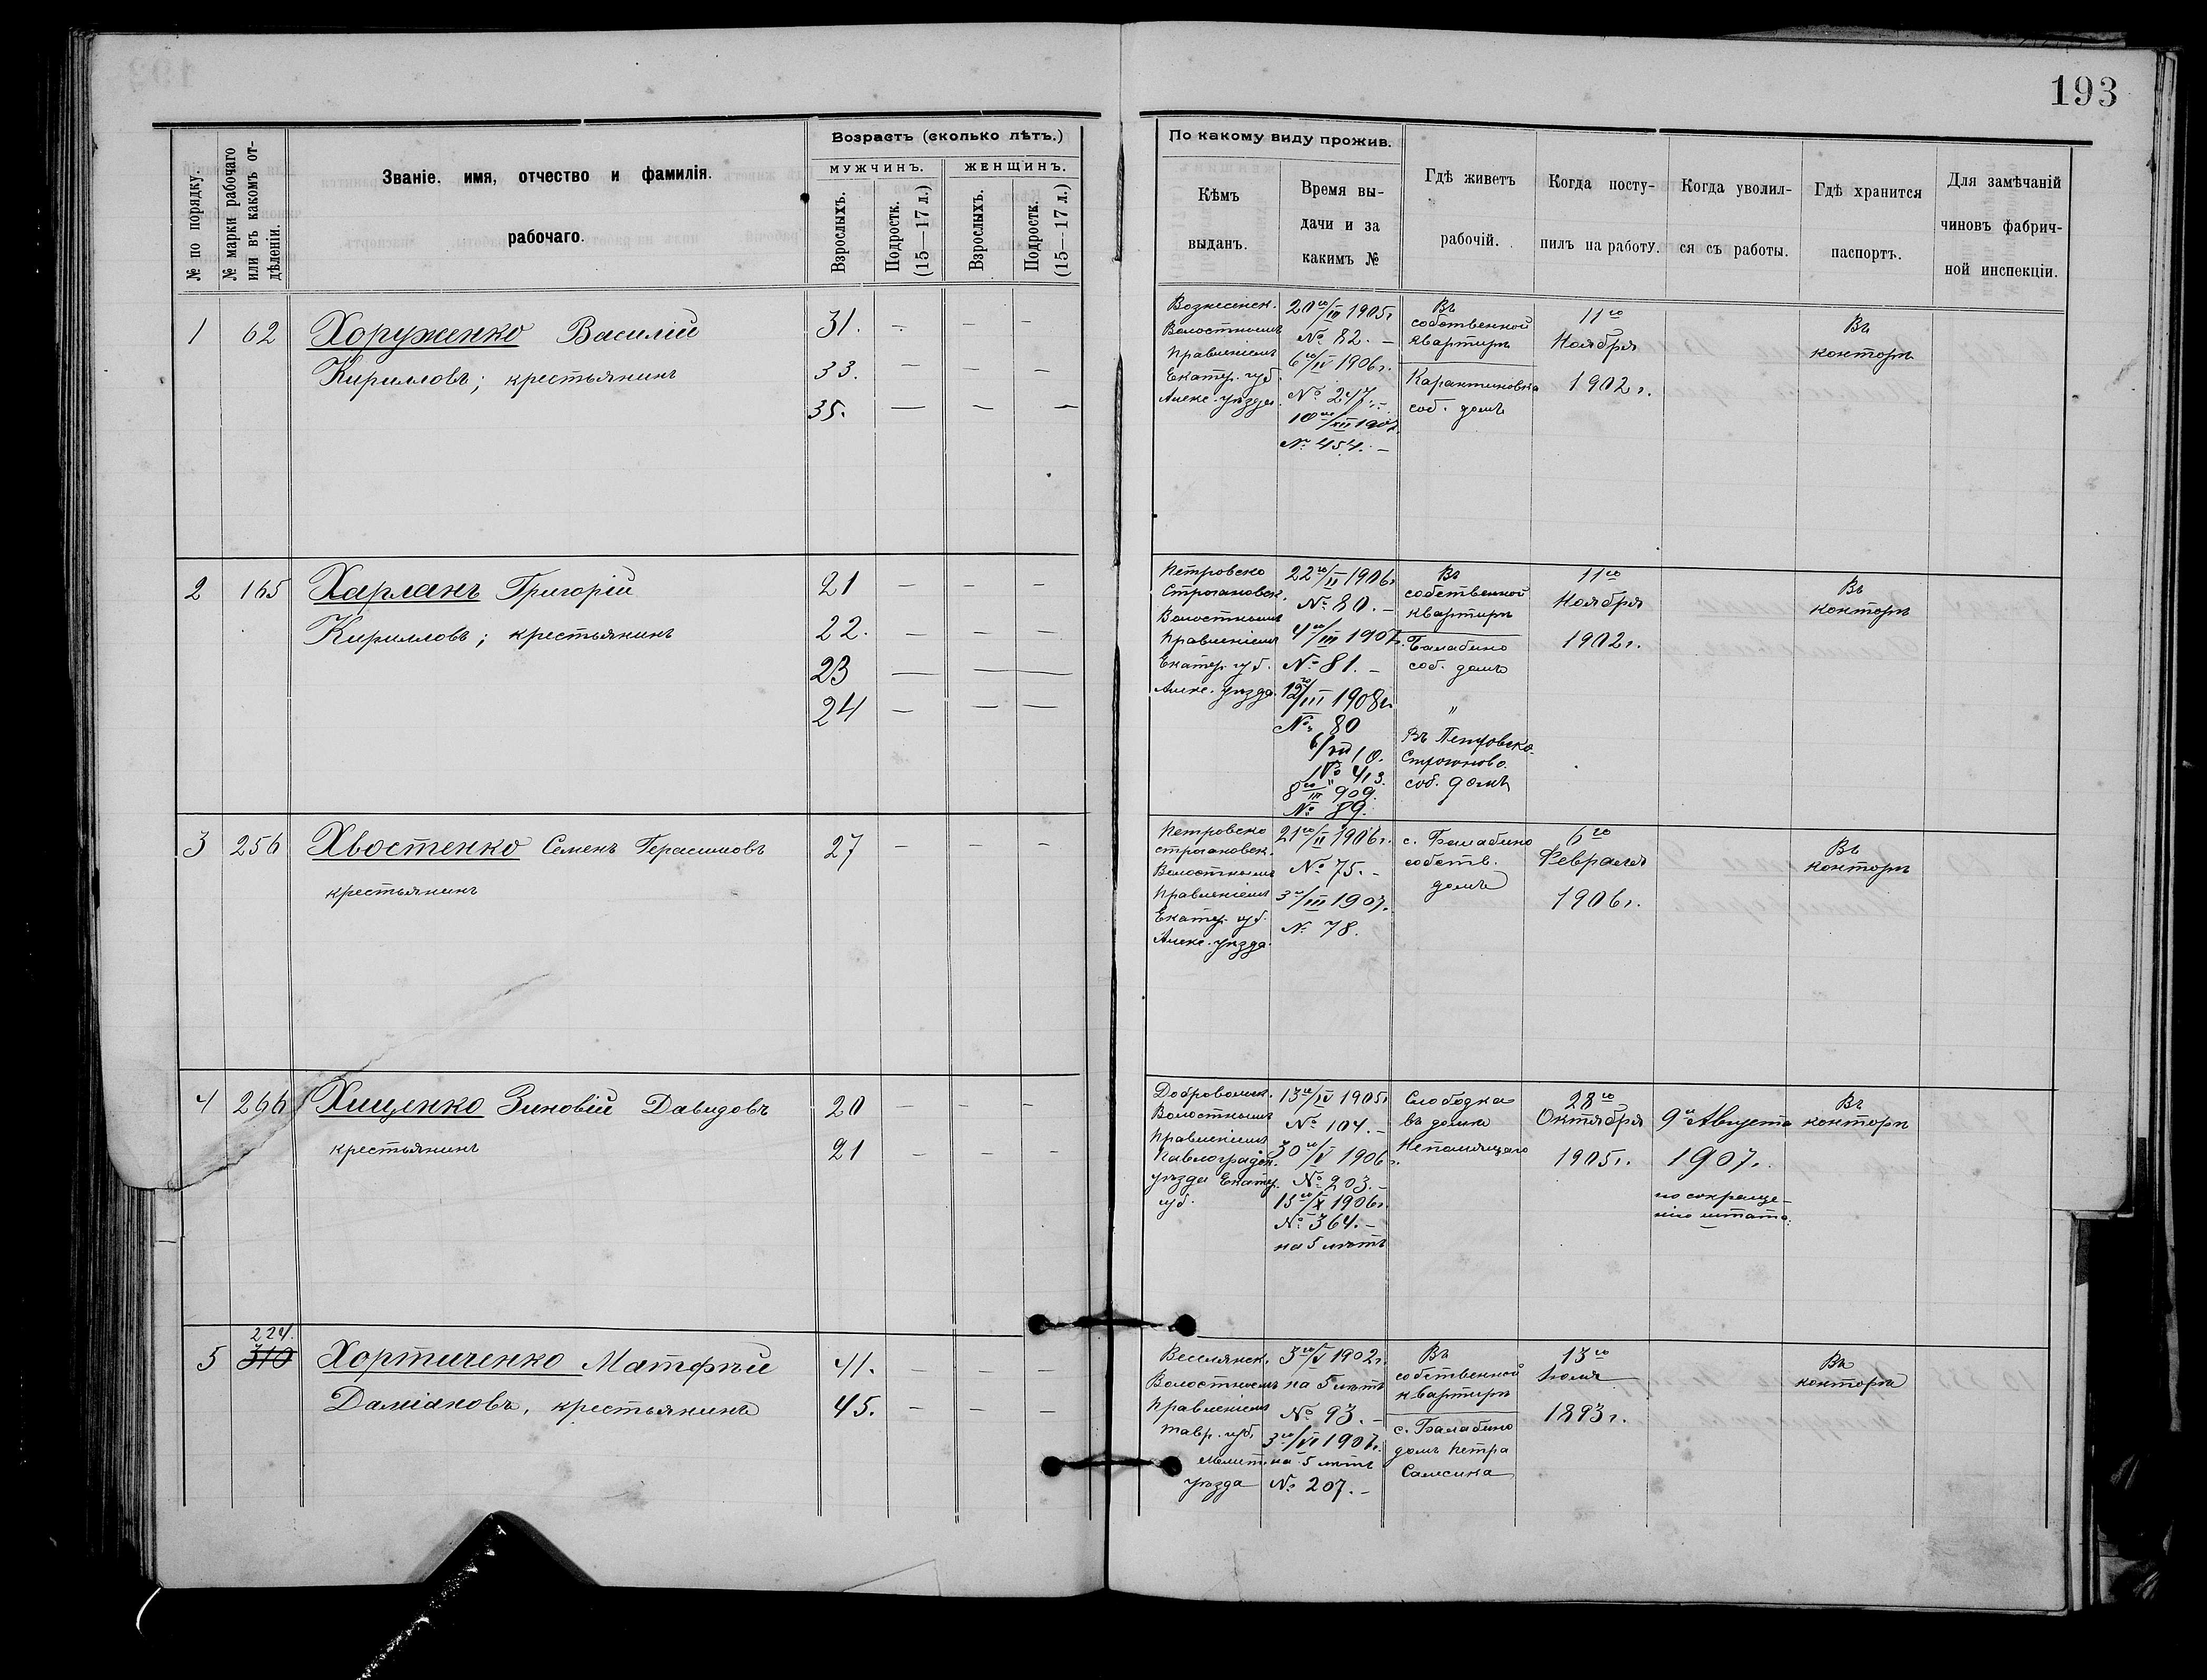 193
№ по порядку.
№ марки рабочаго
или въ какомъ от-
дѣленіи.
Званіе, имя, отчество и фамилія.
рабочаго.
Возрастъ (сколько лѣтъ.)
МУЖЧИНЪ.
ЖЕНЩИНЪ.
Взрослыхъ.
Подростк.
(15—17 л.)
Взрослыхъ.
Подростк.
(15—17 л.)
По какому виду прожив.
Кѣмъ
выданъ.
Время вы-
дачи и за
какимъ №
Гдѣ живетъ
рабочій.
Когда посту-
пилъ на работу.
Когда уволил-
ся съ работы.
Гдѣ хранится
паспортъ.
Для замѣчаній
чиновъ фабрич-
ной инспекціи.
1
62
Хоруженко Василій
Кирилловъ; крестьянинъ
31. - - -
33. - - -
35. - - -
Вознесенск.
Волостнымъ
Правленіемъ
Екатер. губ.
Алекс. уѣзда
20го/III 1905г
№ 82. -
6го/IV 1906г.
№ 247. -
10го/XII 1907
№ 454. -
Въ
собственной
квартирѣ
Карантиновка
соб. домъ
11го
Ноября
1902г.
Въ
конторѣ
2
165
Харланъ Григорій
Кирилловъ; крестьянинъ
21 - - -
22. - - -
23 - - -
24 - - -
Петровско
Строгановск.
Волостнымъ
Правленіемъ
Екатер. губ.
Алекс. уѣзда
22го/II 1906г
№ 80. -
4го/III 1907г.
№ 81. -
12го/III 1908г.
№ 80
6/VII 10.
№ 413.
8го/III 909.
№ 89.
Въ
собственной
квартирѣ
Балабино
соб. домъ
"
Въ Петровско-
соб. домъ
11го
Ноября
1902г.
Въ
конторѣ
3
256
Хвостенко Семенъ Герасимовъ
крестьянинъ
27 - - -
Петровско
строгановск.
Волостнымъ
Правленіемъ
Екатер. губ.
Алекс. уѣзда
21го/II 1906г.
№ 75. -
3го/III 1907г.
№ 78.
с. Балабино
собств.
домъ
6го
Февраля
1906г.
Въ
конторѣ
4
266
Хищенко Зиновій Давидовъ
крестьянинъ
20 - - -
21 - - -
Добровольск.
Волостнымъ
Правленіемъ
Павлоградск.
уѣзда Екатер.
губ.
13го/IV 1905г
№ 104. -
30го/V 1906г.
№ 203. -
13го/X 1906г.
№ 364. -
на 5 лѣтъ
Слободка
въ домѣ
28го
Октября
1905г.
9го Августа
1907г.
по сокраще-
нію штата.
Въ
конторѣ
5
224.
310
Хортиченко Матфѣй
Даміановъ, крестьянинъ
41. - -
45. - - -
Веселянск.
Волостнымъ
Правленіемъ
Тавр. губ.
Мелит.
уѣзда
3го/V 1902г.
на 5 лѣтъ
№ 93. -
3го/VI 1907г.
на 5 лѣтъ
№ 207. -
Въ
собственной
квартирѣ
с. Балабино
домъ Петра
13го
Іюля
1893г.
Въ
конторѣ